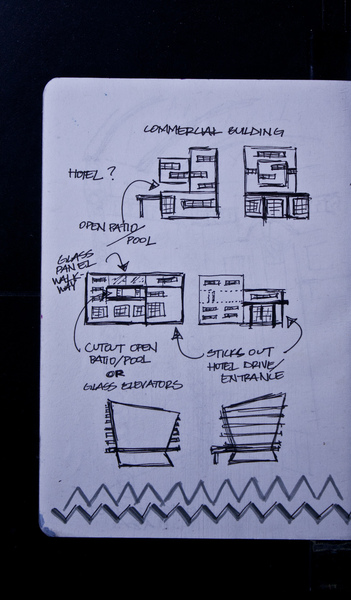 COMMERCIAL BUILDING
HOTEL?
OPEN PATIO/
POOL
GLASS
PANEL
WALK-
WAY
CUTOUT OPEN
PATIO/POOL
OR
GLASS ELEVATORS
STICKS OUT
HOTEL DRIVE/
ENTRANCE